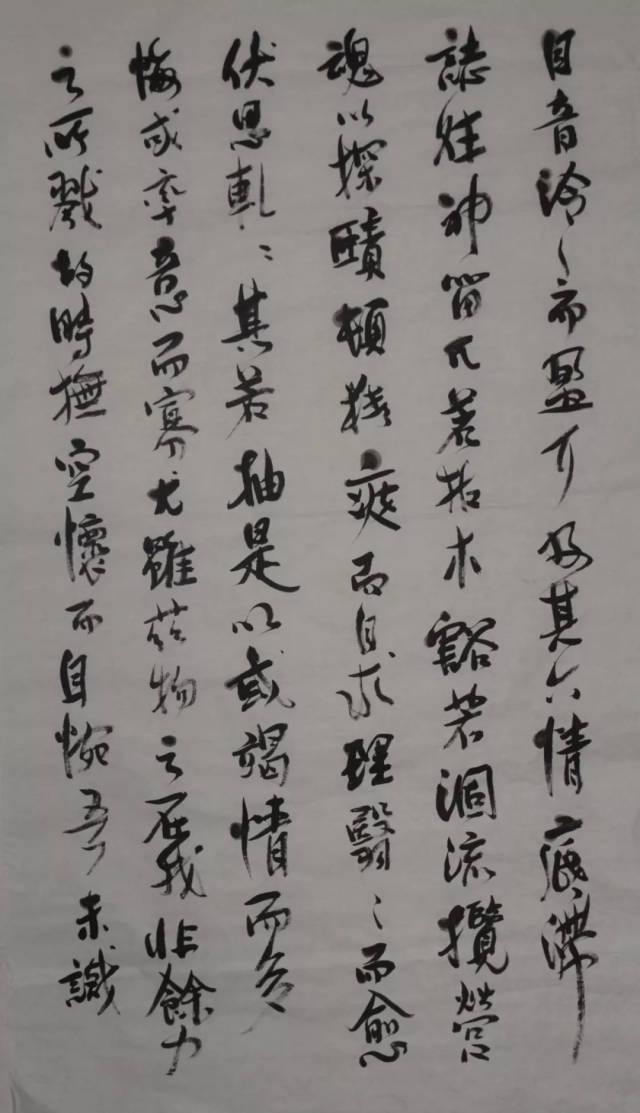 目音泠々而盈耳及其六情底滯
誌往神留兀若枯木豁若涸流攬營
魂以探賾頓精爽而自求理翳々而愈
伏思軋々其若抽是以或竭情而多
悔或率意而寡尤雖茲物之在我非餘力
之所戮故時撫空懷而自惋吾未識